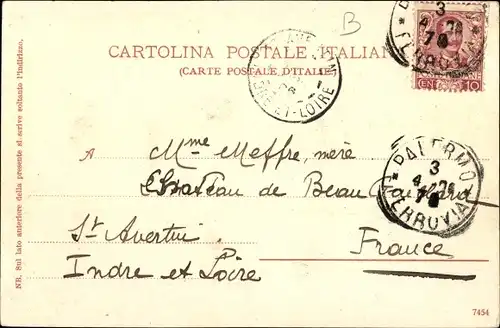 B
CARTOLINA POSTALE ITALIANA
(CARTE POSTALE D'ITALIE)
CENT 10
ET-LOIRE
NB. Sul lato anteriore della presente si scrive soltanto l'indirizzo.
A Mme Meffre, mère
Château de Beau
St Avertin
France
Indre et Loire
PALERMO
3
4
FERROVIA
7454